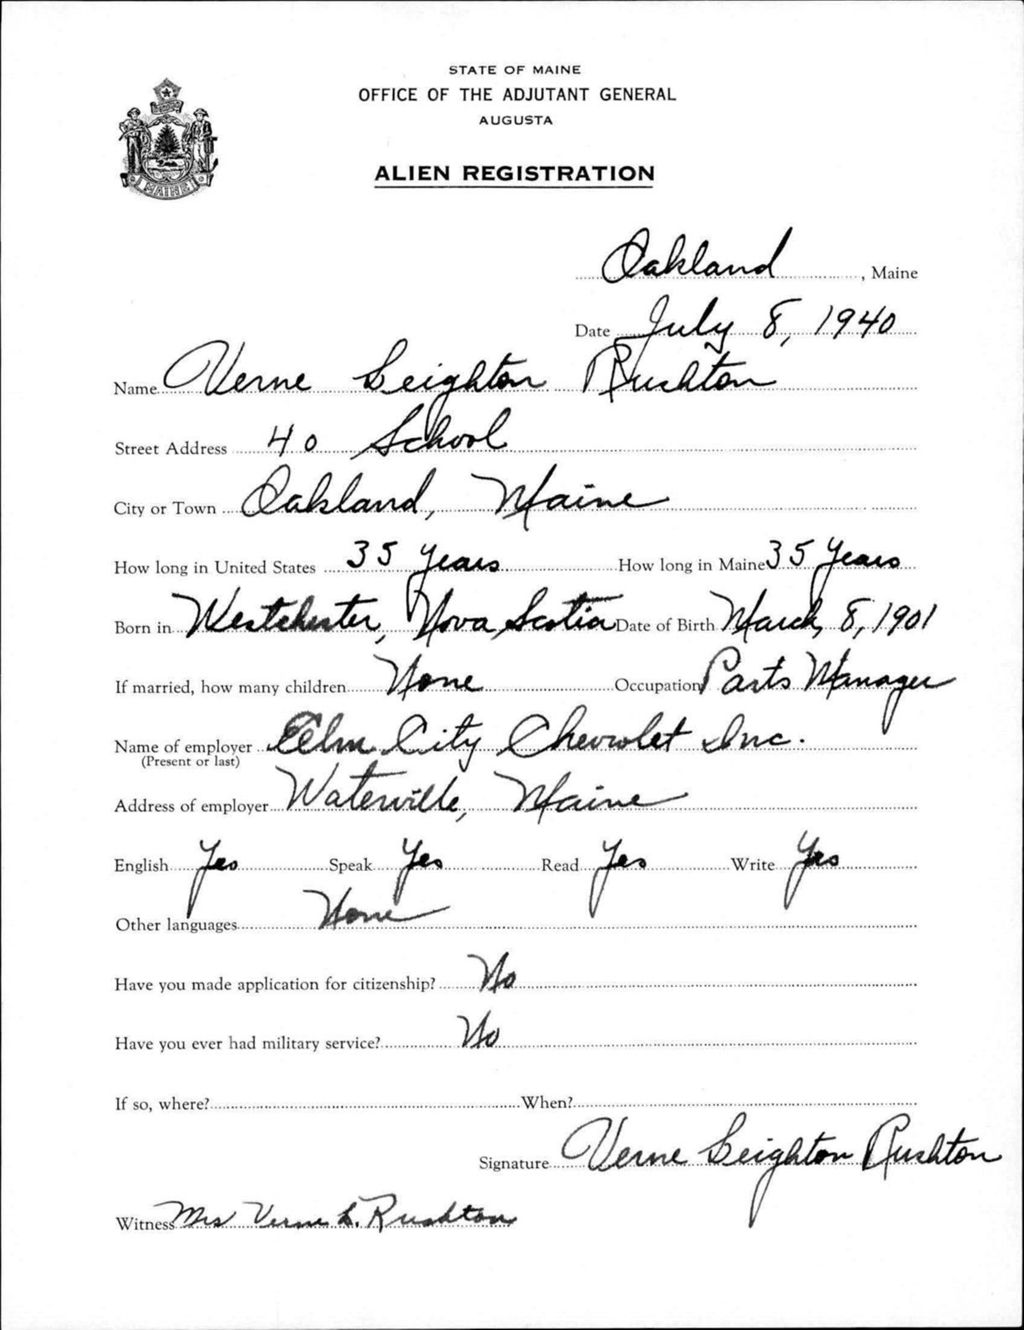 STATE OF MAINE
OFFICE OF THE ADJUTANT GENERAL
AUGUSTA
MAINE
ALIEN REGISTRATION
Oakland, Maine
Date July 8, 1940
Name Verne Leighton Rushton
Street Address 40 School
City or Town Oakland, Maine
How long in United States 35 Years How long in Maine 35 Years
Born in Westchester, Nova Scotia Date of Birth March, 8, 1901
If married, how many children None Occupation Parts Manager
Name of employer Elm City Chevrolet Inc.
(Present or last)
Address of employer Waterville, Maine
English Yes Speak Yes Read Yes Write Yes
Other languages None
Have you made application for citizenship? No
Have you ever had military service? No
If so, where? When?
Signature Verne Leighton Rushton
Witness Mrs Verne L. Rushton